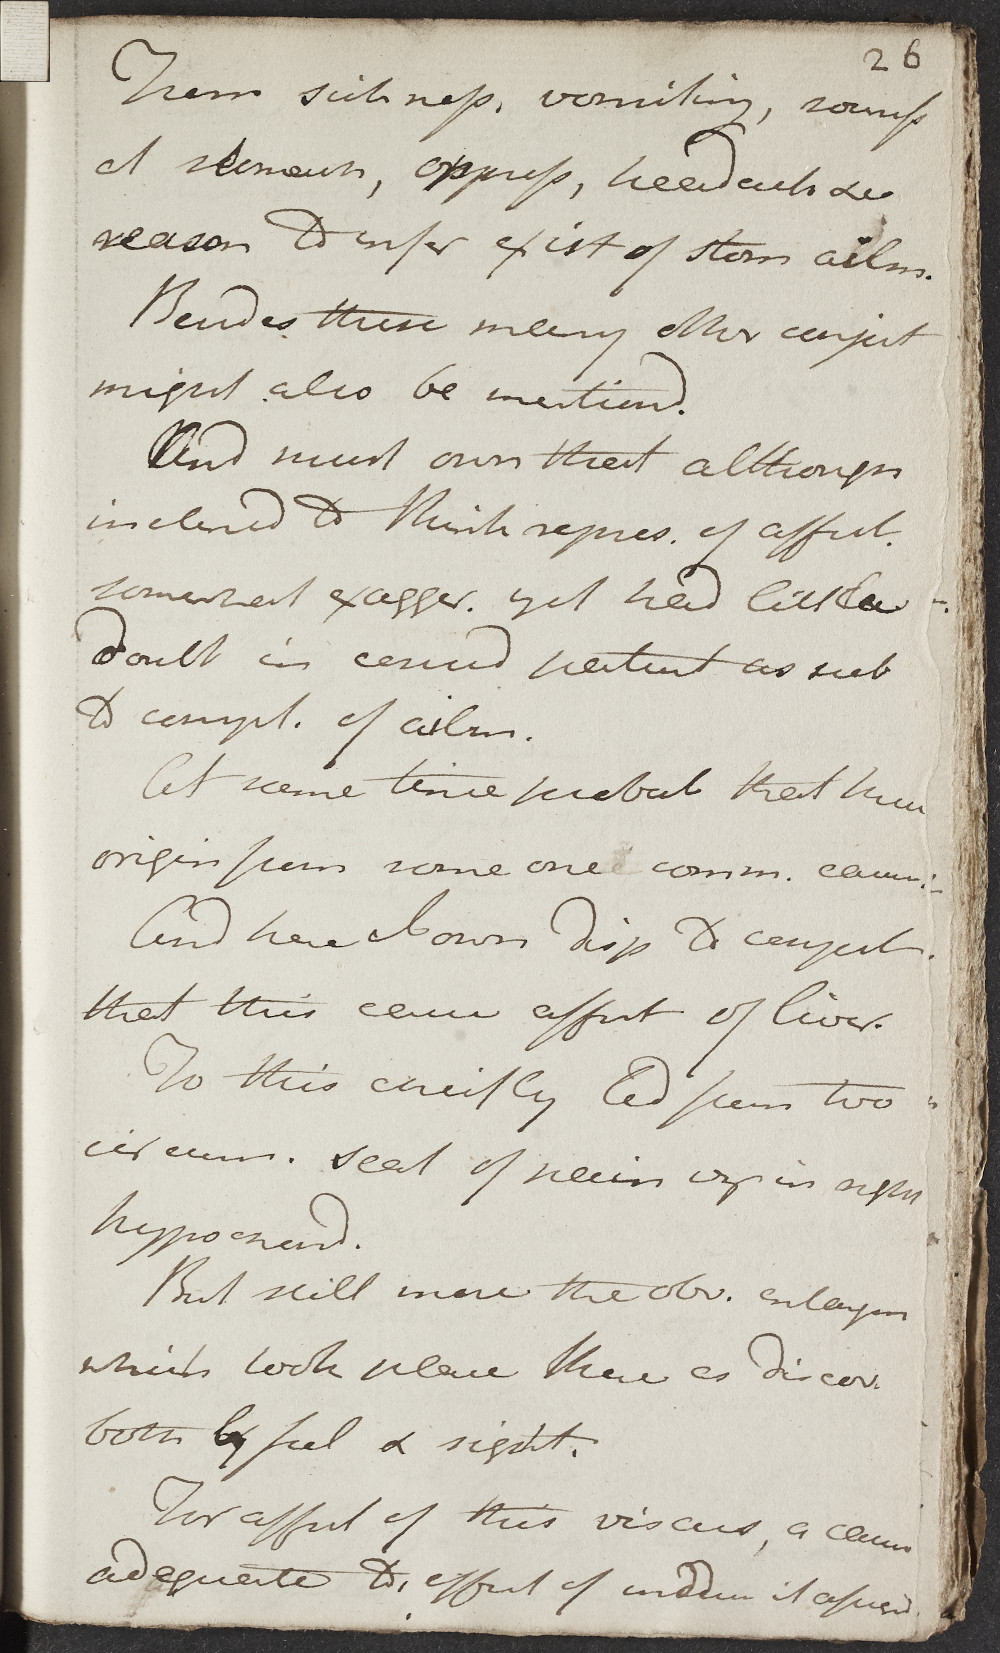 26
From sickness, vomiting, sourness
at stomach, oppress, headach &c
reason to infer exist of stom ailm.
Besides these many other conject
might also be mentiond.
And must own that although
inclined to think repres. of affect.
somewhat exagger. yet had little
doubt in consid patient as sub
to compl. of ailm.
At same time probab that have
origin from some one comm. cause
And here I own disp to conject.
that this cause affect of liver.
To this cheifly led from two
circum. seat of pain viz in right
hypochond.
But still more the obv. enlargm
which took place there as discov.
both by feel & sight.
For affect of this viscus, a cause
adequate to effect of it